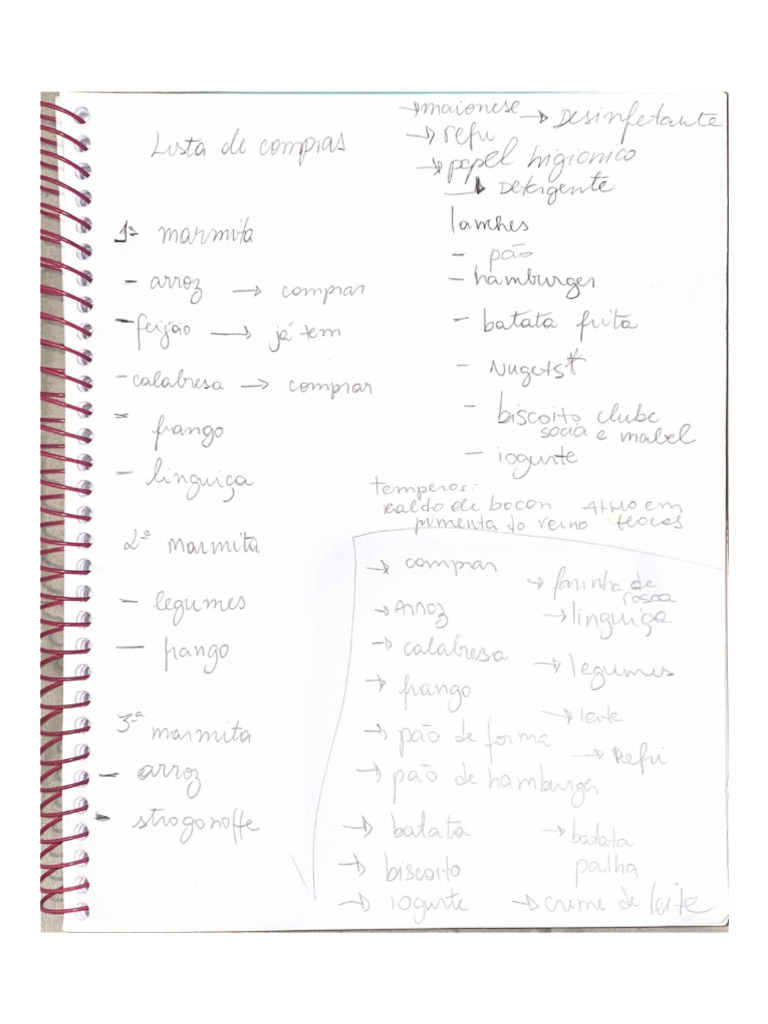 Lista de compras
1ª marmita
- arroz → comprar
- feijão → já tem
- calabresa → comprar
- frango
- linguiça
2ª marmita
- legumes
- frango
3ª marmita
- arroz
- strogonoffe
→ maionese → Desinfetante
→ refri
→ papel higionico
→ Detergente
lanches
- pão
- hamburger
- batata frita
- Nugets*
- biscoito clube
social e mabel
- iogurte
temperos:
caldo de bacon Alho em
pimenta do reino
→ comprar
→ Arroz
→ calabresa
→ frango
→ pão de forma
→ pão de hamburger
→ batata
→ biscoito
→ iogurte
→ farinha de
rosca
→ linguiça
→ legumes
→ leite
→ Refri
→ batata
palha
→ creme de leite